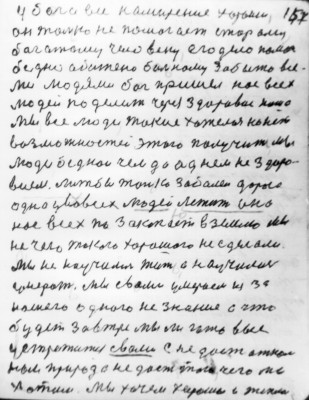 у бога все намирение хороши, 157
он толко не помогает старому
богатому человеку его дело помоч
бедно обижено болному забыто все-
ми людями бог пришел нас всех
людей поделит через здоровье
мы все люди такие хотели
возможностей этого получит мы
люди бедной чем до однем не здоро-
вием. толко забали дорога
одна у всех людей летит она
нас всех по закопает в землю мы
не чего такого хорошого не сделали.
мы не научилис жит а научилис
умерат. мы сами умераем из за
нашего одного не знание а что
будет завтре мы готовые
устретит сами с не даст
нам природа не даст того чего мы
хотим. мы хочем хорошо а